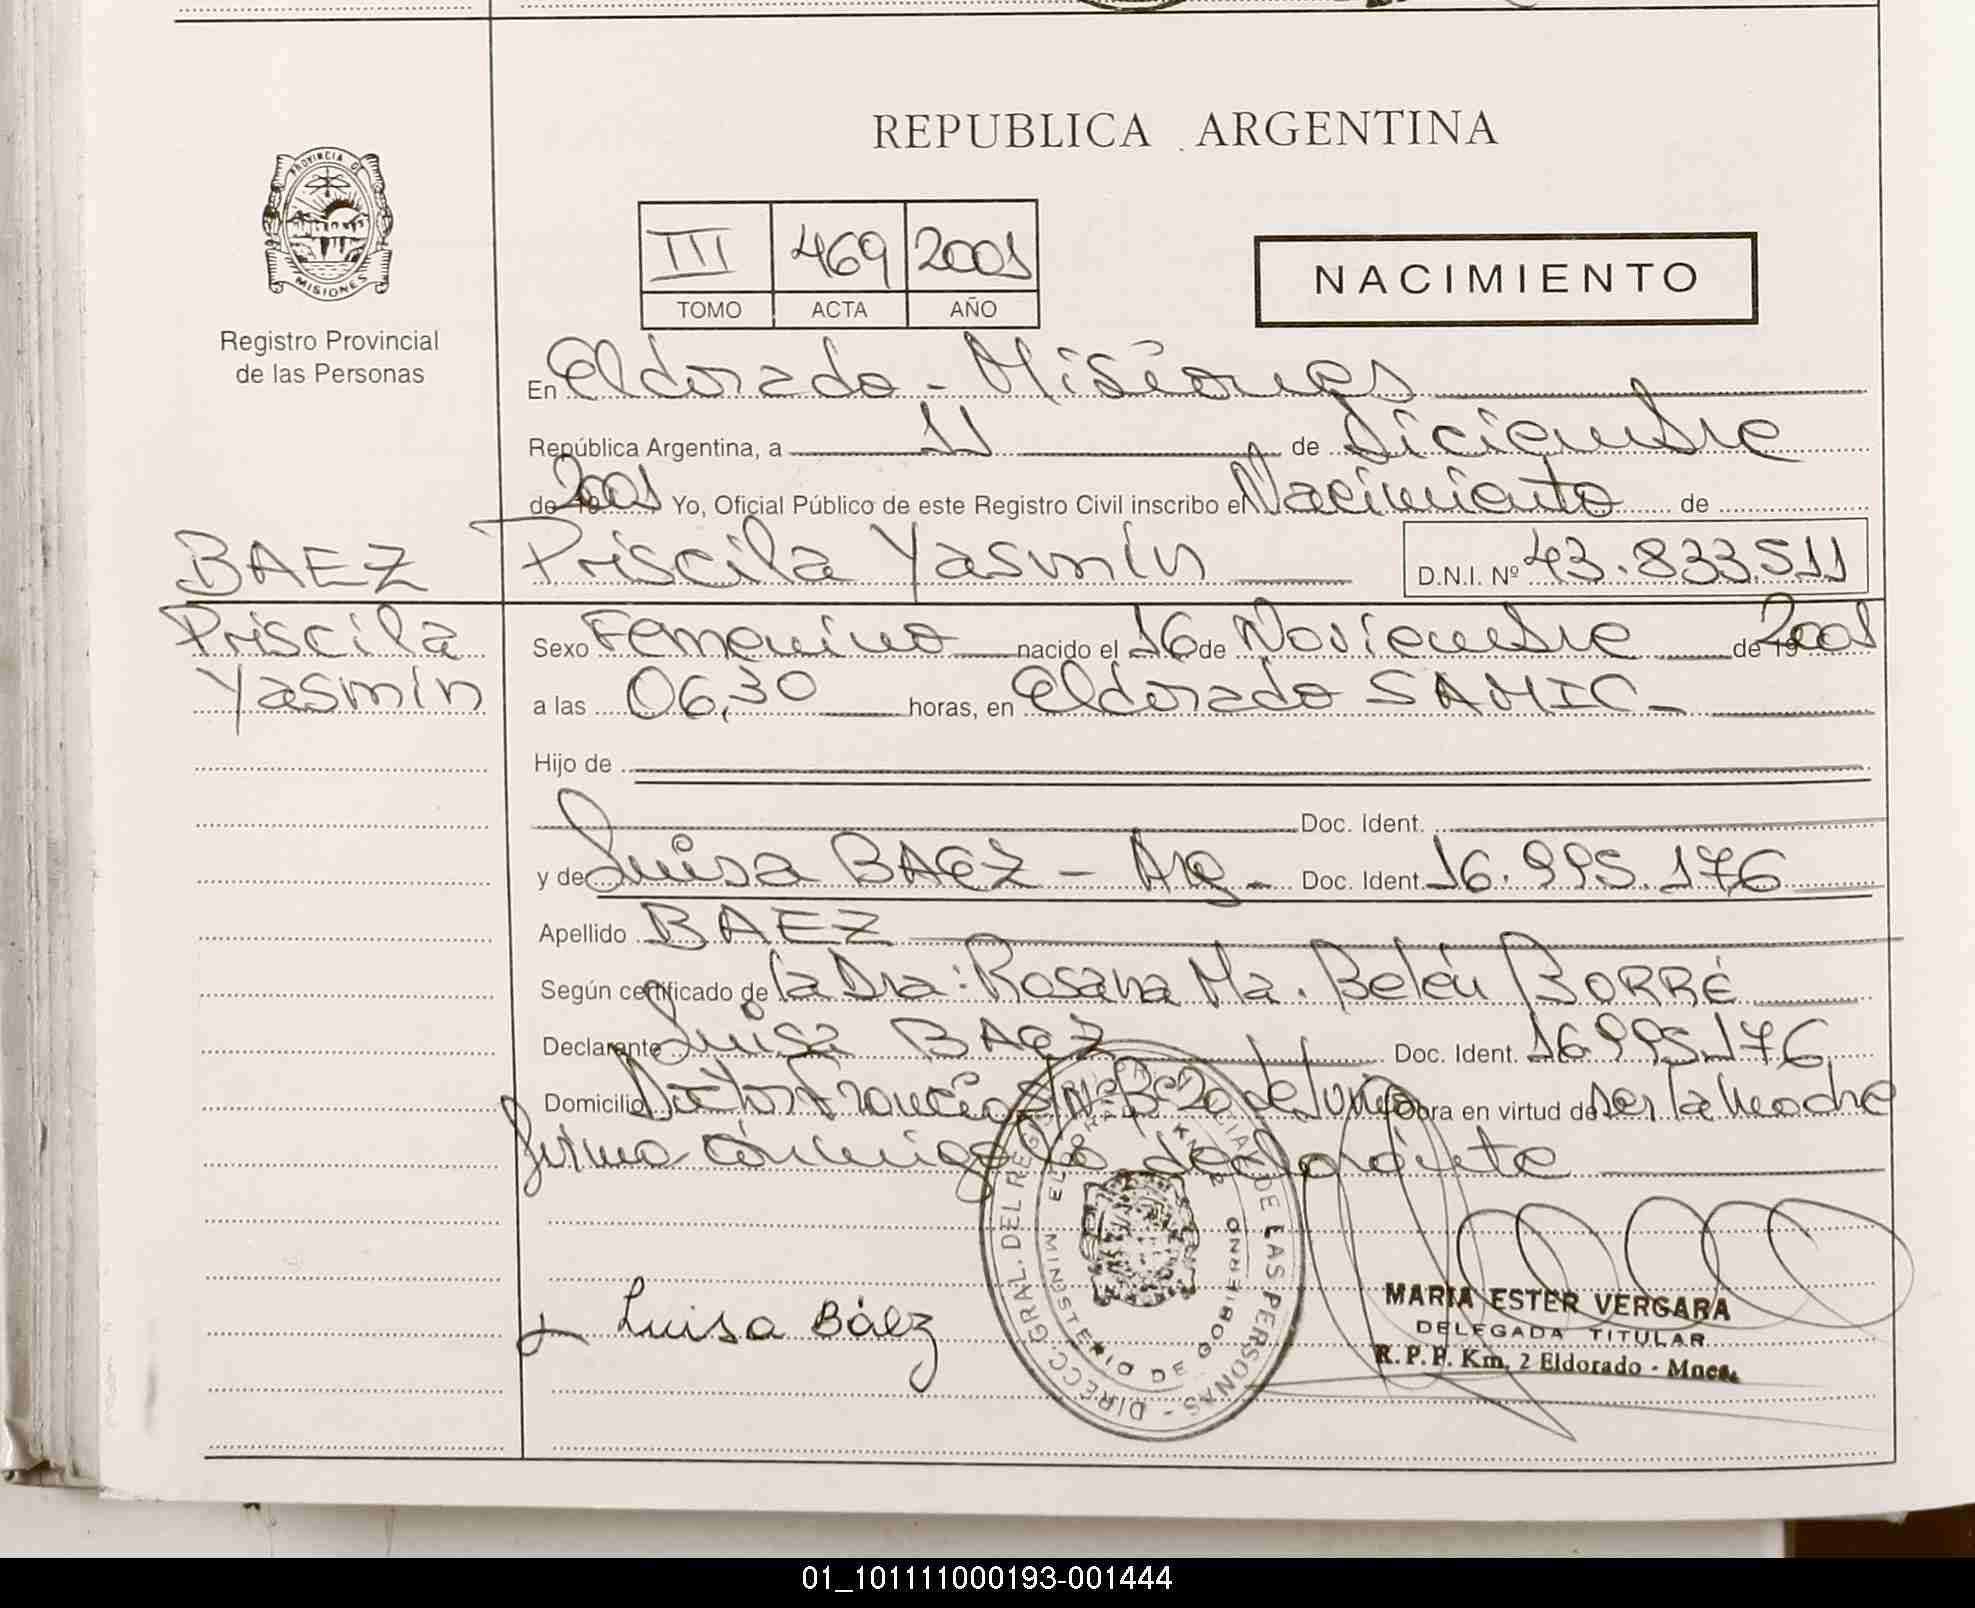 REPUBLICA ARGENTINA
PROVINCIA DE
MISIONES
Registro Provincial
de las Personas
III 469 2001
TOMO ACTA AÑO
NACIMIENTO
En Eldorado - Misiones
República Argentina, a 11 de Diciembre
de 19 2001 Yo, Oficial Público de este Registro Civil inscribo el Nacimiento de
BAEZ Priscila Yasmín D.N.I. Nº 43.833.511
Priscila Sexo Femenino nacido el 16 de Noviembre de 19 2001
Yasmín a las 06,30 horas, en Eldorado SAMIC -
Hijo de
Doc. Ident.
y de Luisa BAEZ - Arg - Doc. Ident. 16.995.176
Apellido BAEZ
Según certificado de la Dra: Rosana Ma. Belén BORRÉ
Declarante Luisa BAEZ Doc. Ident. 16.995.176
Domicilio Doctor Francia S/N Bº 20 de Junio Obra en virtud de ser la Madre
firma conmigo la declarante
DIRECC. GRAL. DEL REGISTRO PROVINCIAL DE LAS PERSONAS -
MINISTERIO DE GOBIERNO
ELDORADO KM 2
Luisa Báez
MARIA ESTER VERGARA
DELEGADA TITULAR
R.P.P. Km, 2 Eldorado - Mnes.
01_101111000193-001444